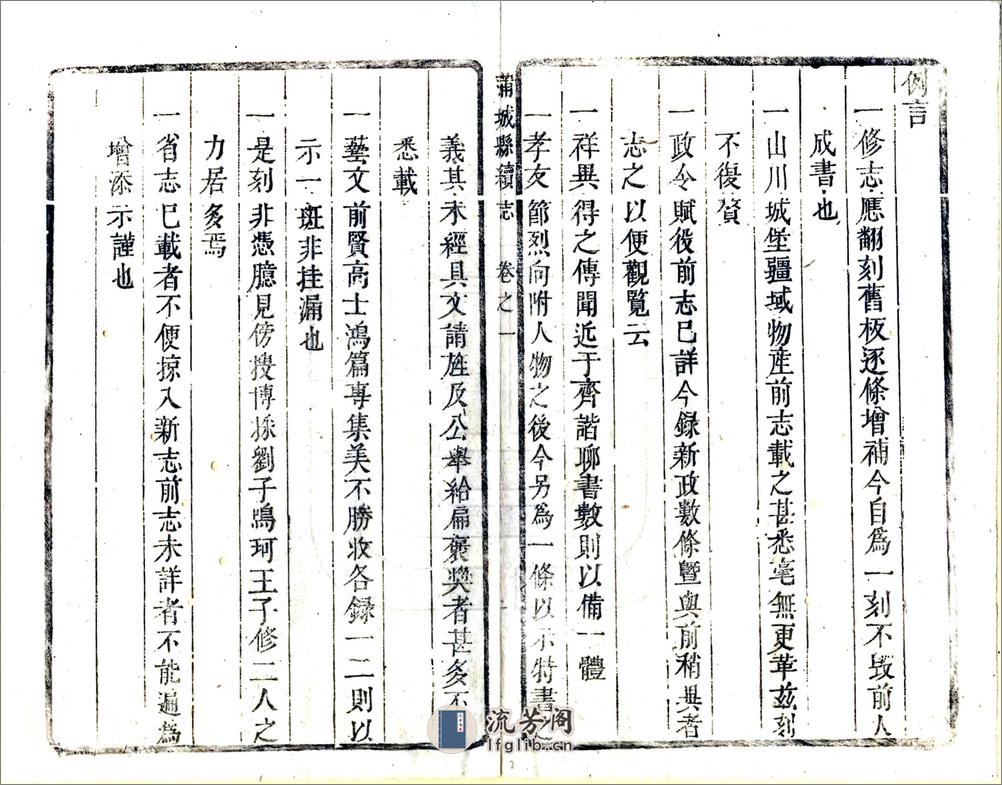 例言
一修志應翻刻舊板逐條增補今自為一刻不毀前人
成書也
一山川城堡疆域物產前志載之甚悉毫無更革茲刻
不復贅
一政令賦役前志已詳今錄新政數條暨與前稍異者
志之以便觀覽云
一祥異得之傳聞近于齊諧聊書數則以備一體
一孝友節烈向附人物之後今另為一條以示特書之
蒲城縣續志 卷之一
義其未經具文請旌及公舉給扁褒獎者甚多不
悉載
一藝文前賢高士鴻篇專集美不勝收各錄一二則以
示一斑非挂漏也
一是刻非憑臆見傍搜博採劉子鳴珂王子修二人之
力居多焉
一省志已載者不便掠入新志前志未詳者不能遍為
增添示謹也
流芳阁
lfglib.cn